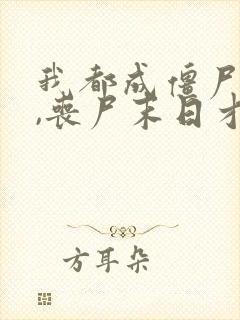 我都成僵尸
,丧尸末日才
方耳朵